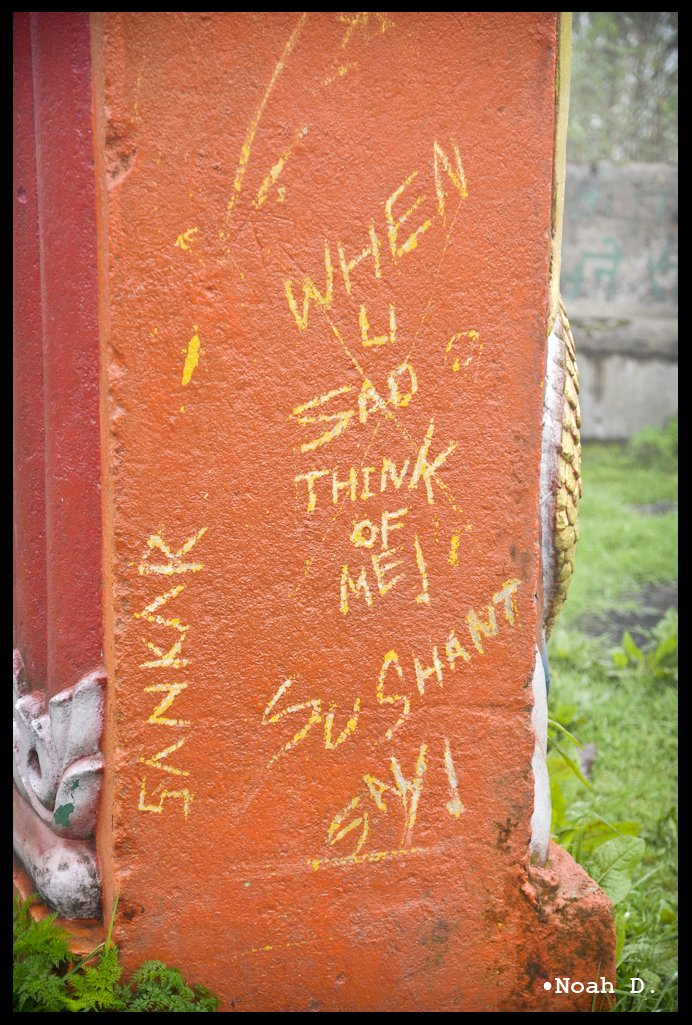 WHEN
U
SAD
THINK
OF
ME!
SUSHANT
SAY!
SANKAR
•Noah D.